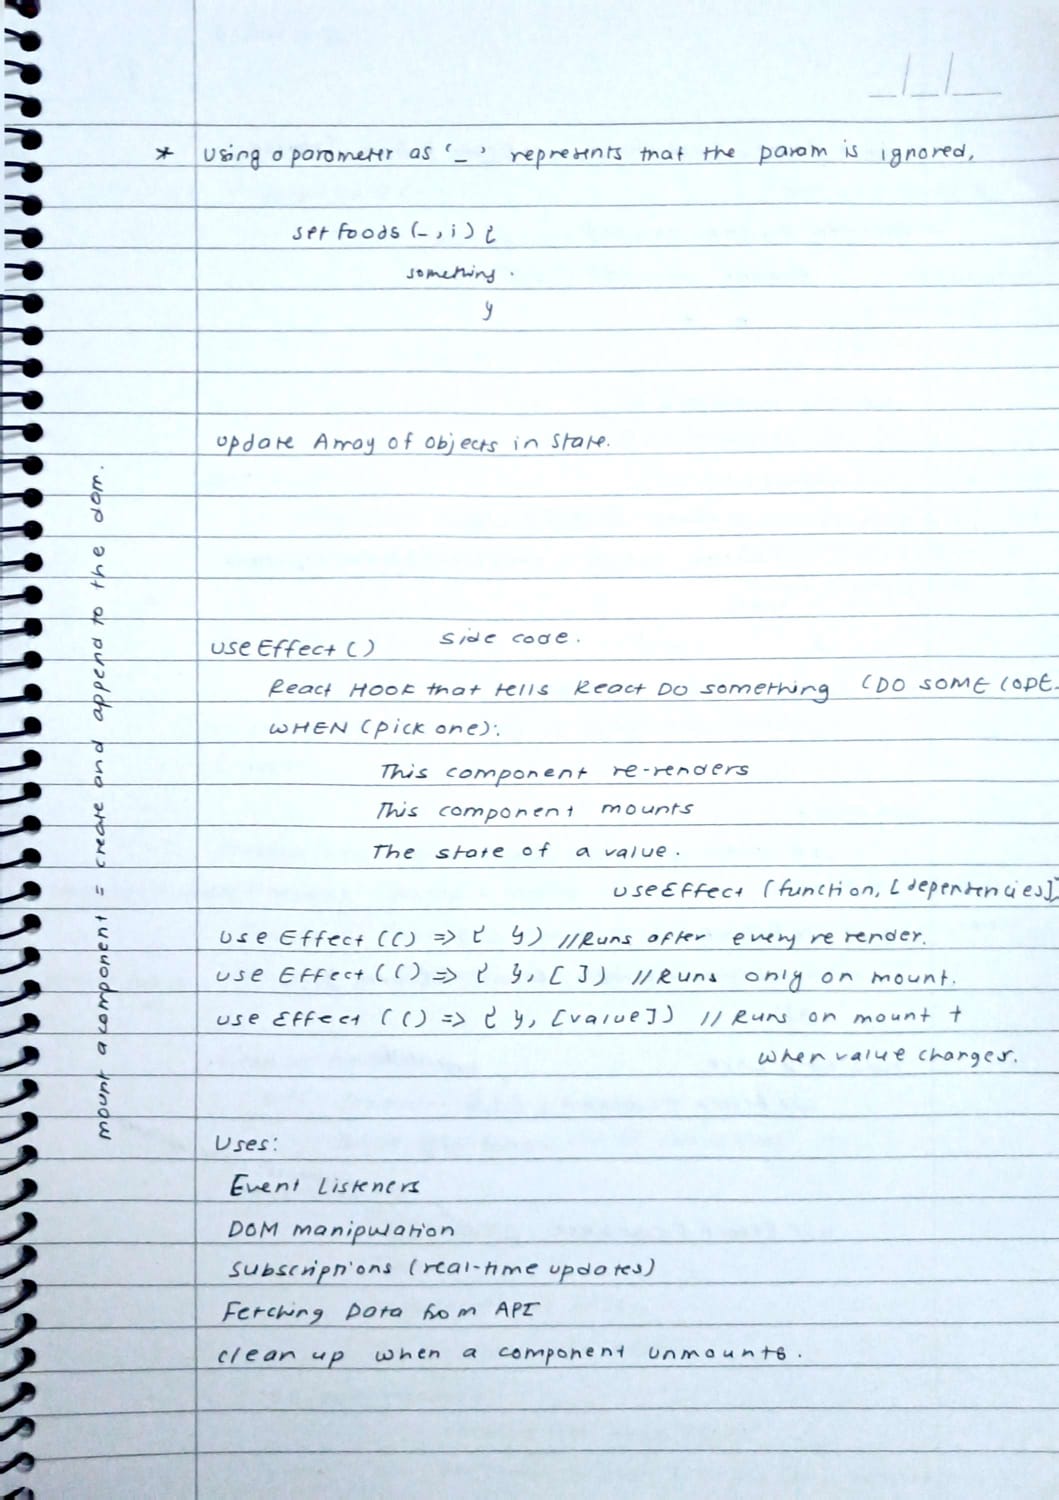 _/_/__
* Using a parameter as '_' represents that the param is ignored,
set Foods (_, i) {
something.
}
Update Array of Objects in State.
useEffect() side code.
React Hook that tells React DO something (DO SOME CODE.
WHEN (pick one):
This component re-renders
This component mounts
The state of a value.
useEffect (function, [dependencies])
use Effect (() => { }) //Runs after every re render.
use Effect (() => { }, [ ]) //Runs only on mount.
use Effect (() => { }, [value]) // Runs on mount +
when value changes.
Uses:
Event Listeners
DOM manipulation
Subscriptions (real-time updates)
Fetching Data from API
clean up when a component unmounts.
mount a component = create and append to the dom.